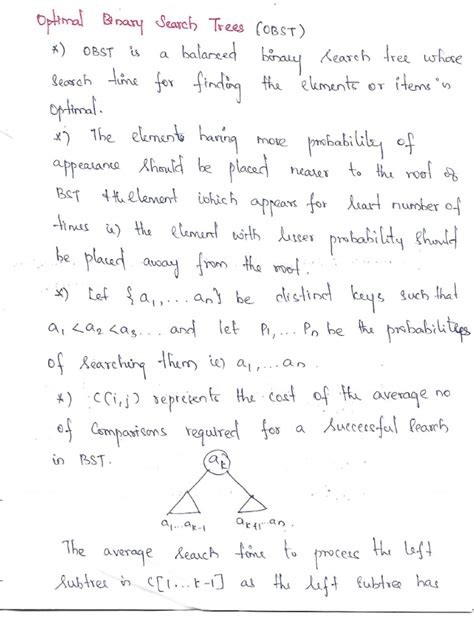 Optimal Binary Search Trees (OBST)
*) OBST is a balanced binary search tree whose
search time for finding the elements or items is
optimal.
*) The elements having more probability of
appearance should be placed nearer to the root of
BST & the element which appears for least number of
times ie) the element with lesser probability should
be placed away from the root.
*) Let {a1,...an} be distinct keys such that
a1 <a2 <a3... and let P1,... Pn be the probabilities
of searching them ie) a1,...an.
*) C(i,j) represents the cost of the average no
of Comparisons required for a Successful Search
in BST.
ak
a1...ak-1 ak+1...an.
The average search time to process the left
subtree is C[1...k-1] as the left subtree has